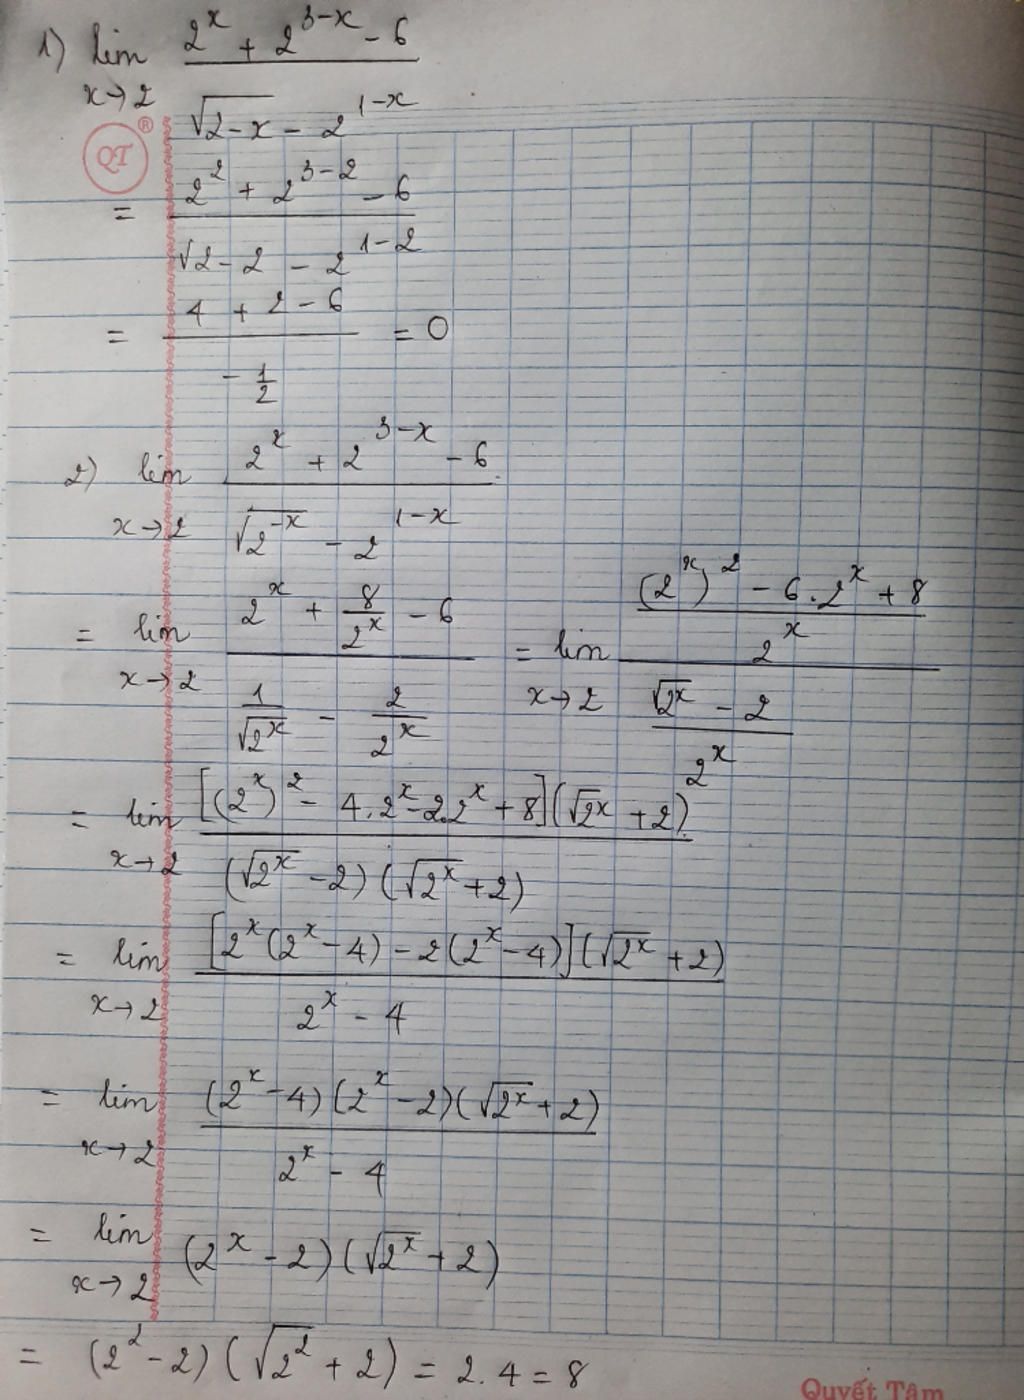 1) lim (2^x + 2^(3-x) - 6) / (√(2-x) - 2^(1-x))
x→2
QT ®
= (2^2 + 2^(3-2) - 6) / (√(2-2) - 2^(1-2))
= (4 + 2 - 6) / (-1/2) = 0
2) lim (2^x + 2^(3-x) - 6) / (√(2^(-x)) - 2^(1-x))
x→2
= lim (2^x + 8/2^x - 6) / (1/√(2^x) - 2/2^x) = lim (((2^x)^2 - 6.2^x + 8) / 2^x) / ((√(2^x) - 2) / 2^x)
x→2 x→2
= lim [(2^x)^2 - 4.2^x - 2.2^x + 8](√2^x + 2) / (√(2^x) - 2)(√(2^x) + 2)
x→2
= lim [2^x(2^x - 4) - 2(2^x - 4)](√(2^x) + 2) / (2^x - 4)
x→2
= lim (2^x - 4)(2^x - 2)(√(2^x) + 2) / (2^x - 4)
x→2
= lim (2^x - 2)(√(2^x) + 2)
x→2
= (2^2 - 2)(√(2^2) + 2) = 2.4 = 8
Quyết Tâm